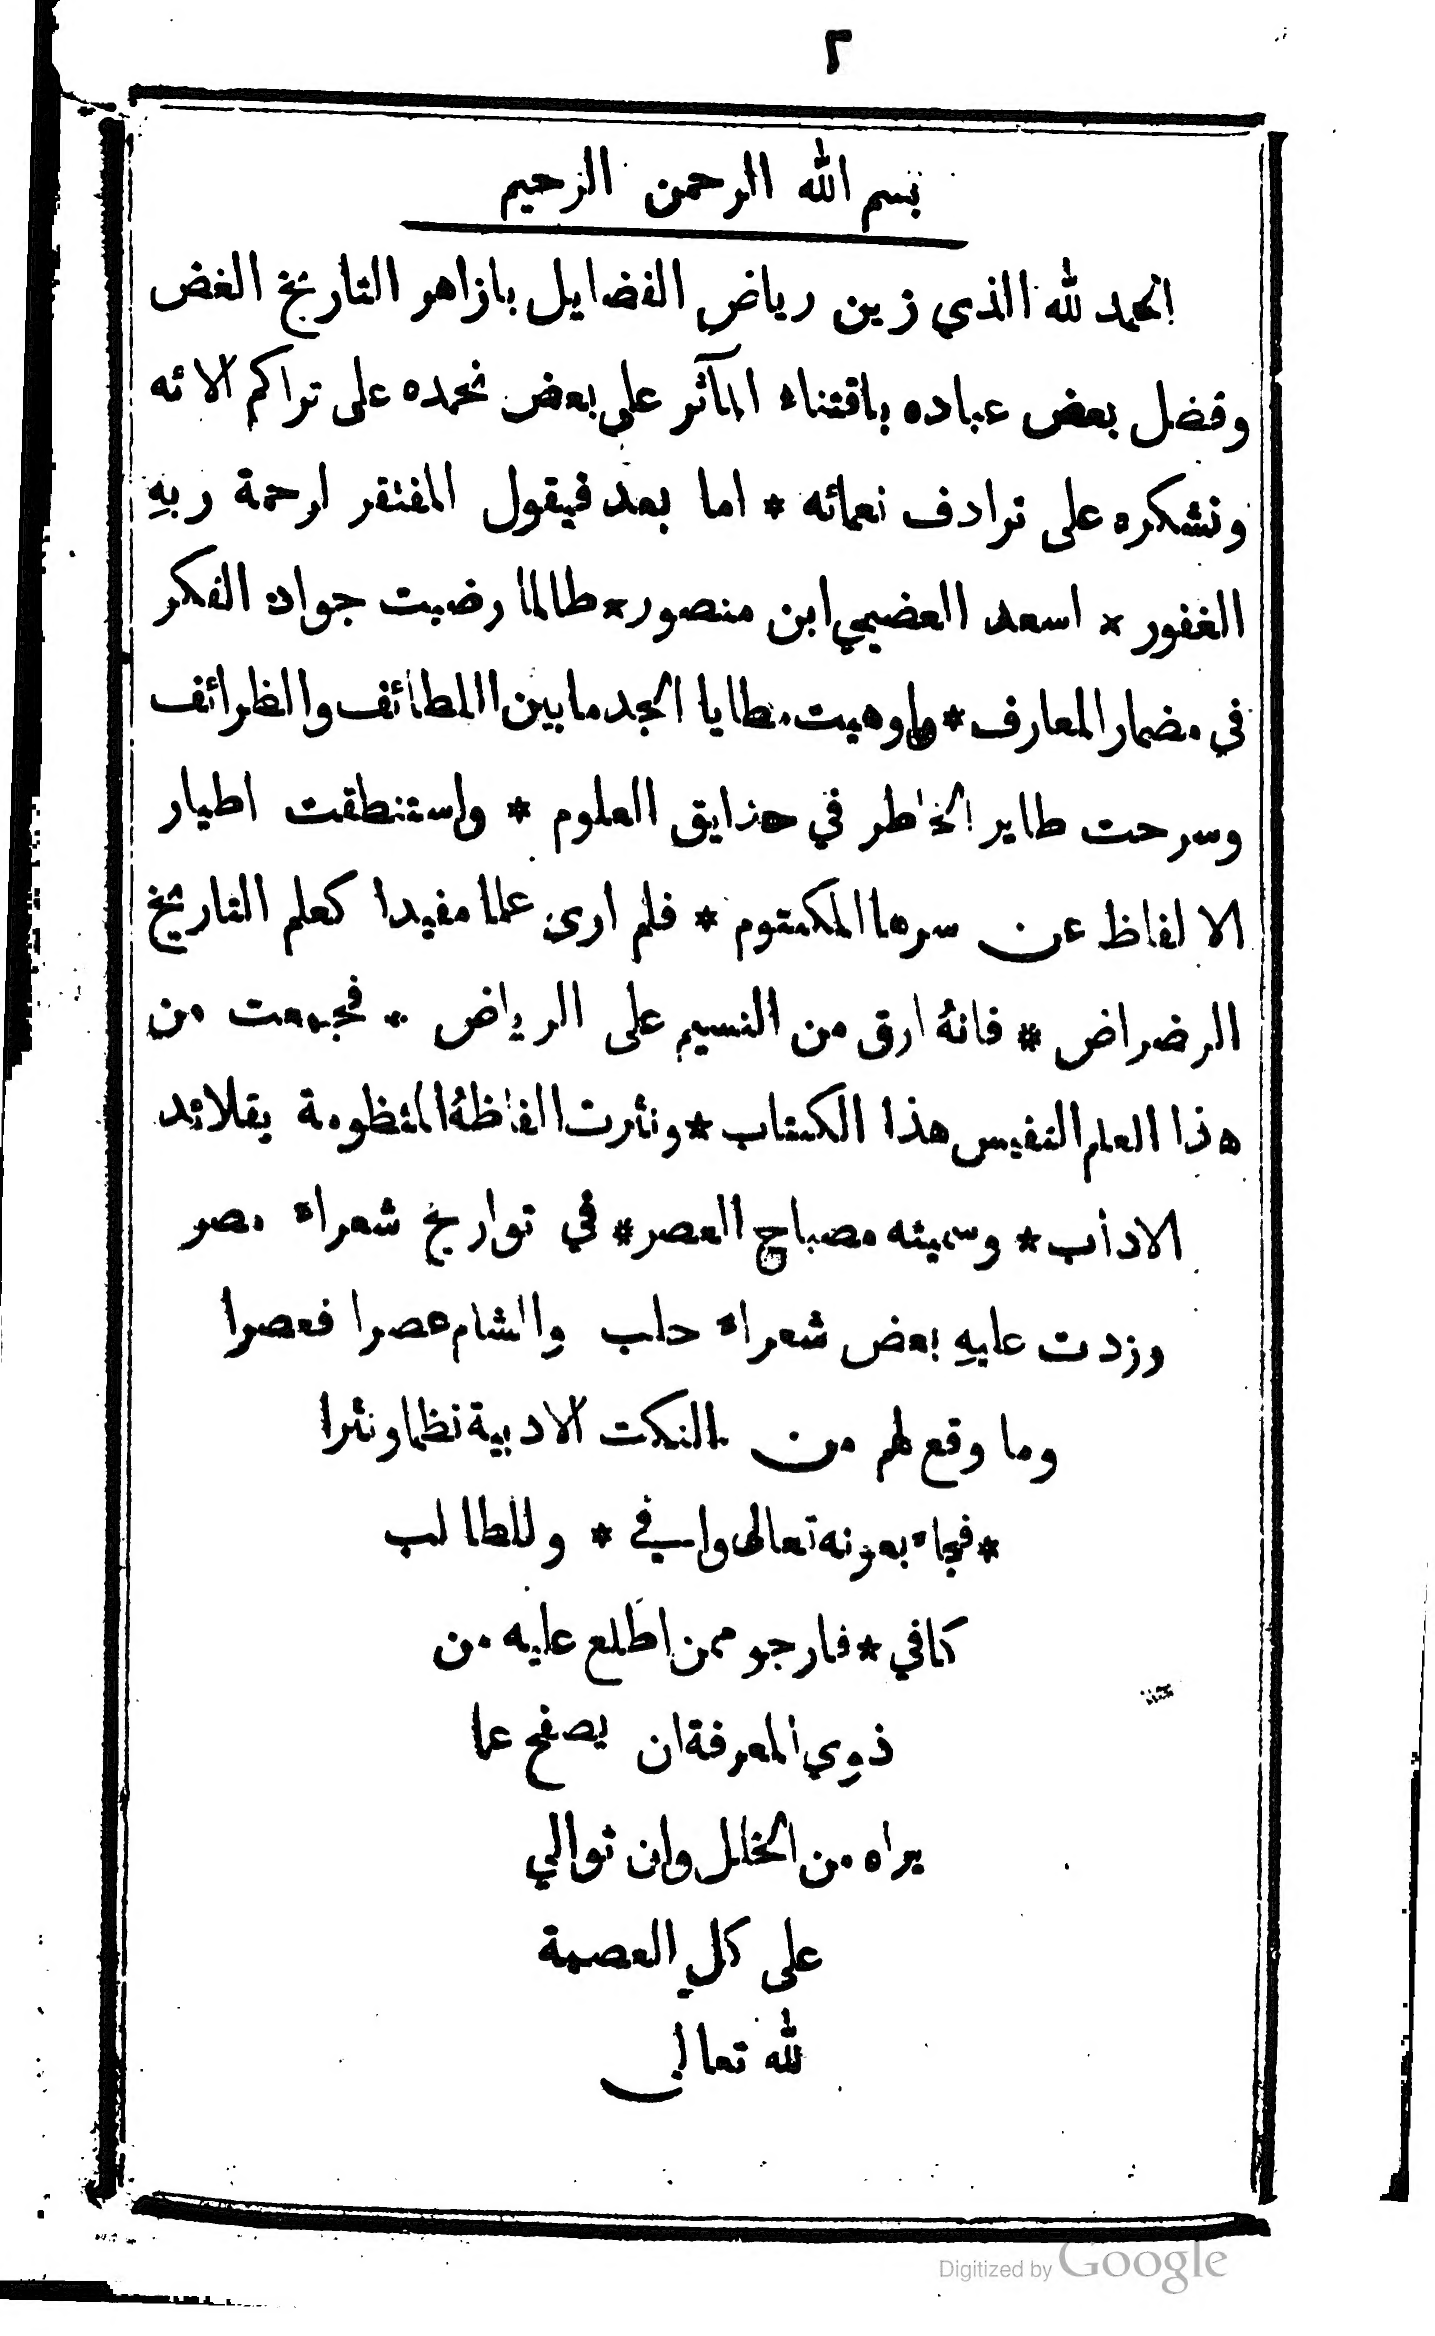 ٢
بسم الله الرحمن الرحيم
الحمد لله الذي زين رياض الفضايل بازاهر التاريخ الغض
وفضل بعض عباده باقتناء المآثر على بعض نحمده على تراكم الائه
ونشكره على ترادف نعمائه * اما بعد فيقول المفتقر لرحمة ربهِ
الغفور * اسعد العضيمي ابن منصور * طالما رضيت جواد الفكر
في مضمار المعارف * مطايا الجد ما بين اللطائف والظرائف
وسرحت طاير الخاطر في حدايق العلوم * واستنطقت اطيار
الالفاظ عن سرها المكتوم * فلم ارى علما مفيدا كعلم التاريخ
الرضراض * فانهُ ارق من النسيم على الرياض * فجمعت من
هذا العلم النفيس هذا الكتاب * ونثرت الفاظهُ المنظومة بقلائد
الاداب * وسميته مصباح العصر * في تواريخ شعراء مصر
وزدت عليهِ بعض شعراء حلب والشام عصرا فعصرا
وما وقع لهم من النكت الادبية نظما ونثرا
* فجاء بعونه تعالى وافي * وللطالب
كافي * فارجو ممن اطلع عليه من
ذوي المعرفة ان يصفح عما
يراه من الخلل وان توالي
على كلٍ العصمة
لله تعالى
Digitized by Google